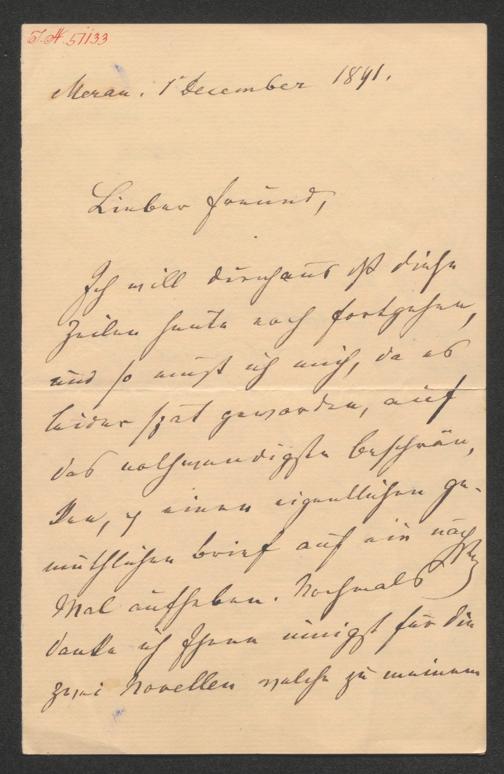 I.N. 51133
Meran. 1 December 1891.
Lieber Freund,
Ich will durchaus diese
Zeilen heute noch fortgehen,
und so muß ich mich, da es
leider spät geworden, auf
das nothwendigste beschrän,
ken, einen eigentlichen ge-
müthlichen Brief auf ein näch
Mal aufheben. Nochmals
danke ich Ihnen innigst für die
zwei Novellen welche zu meinem